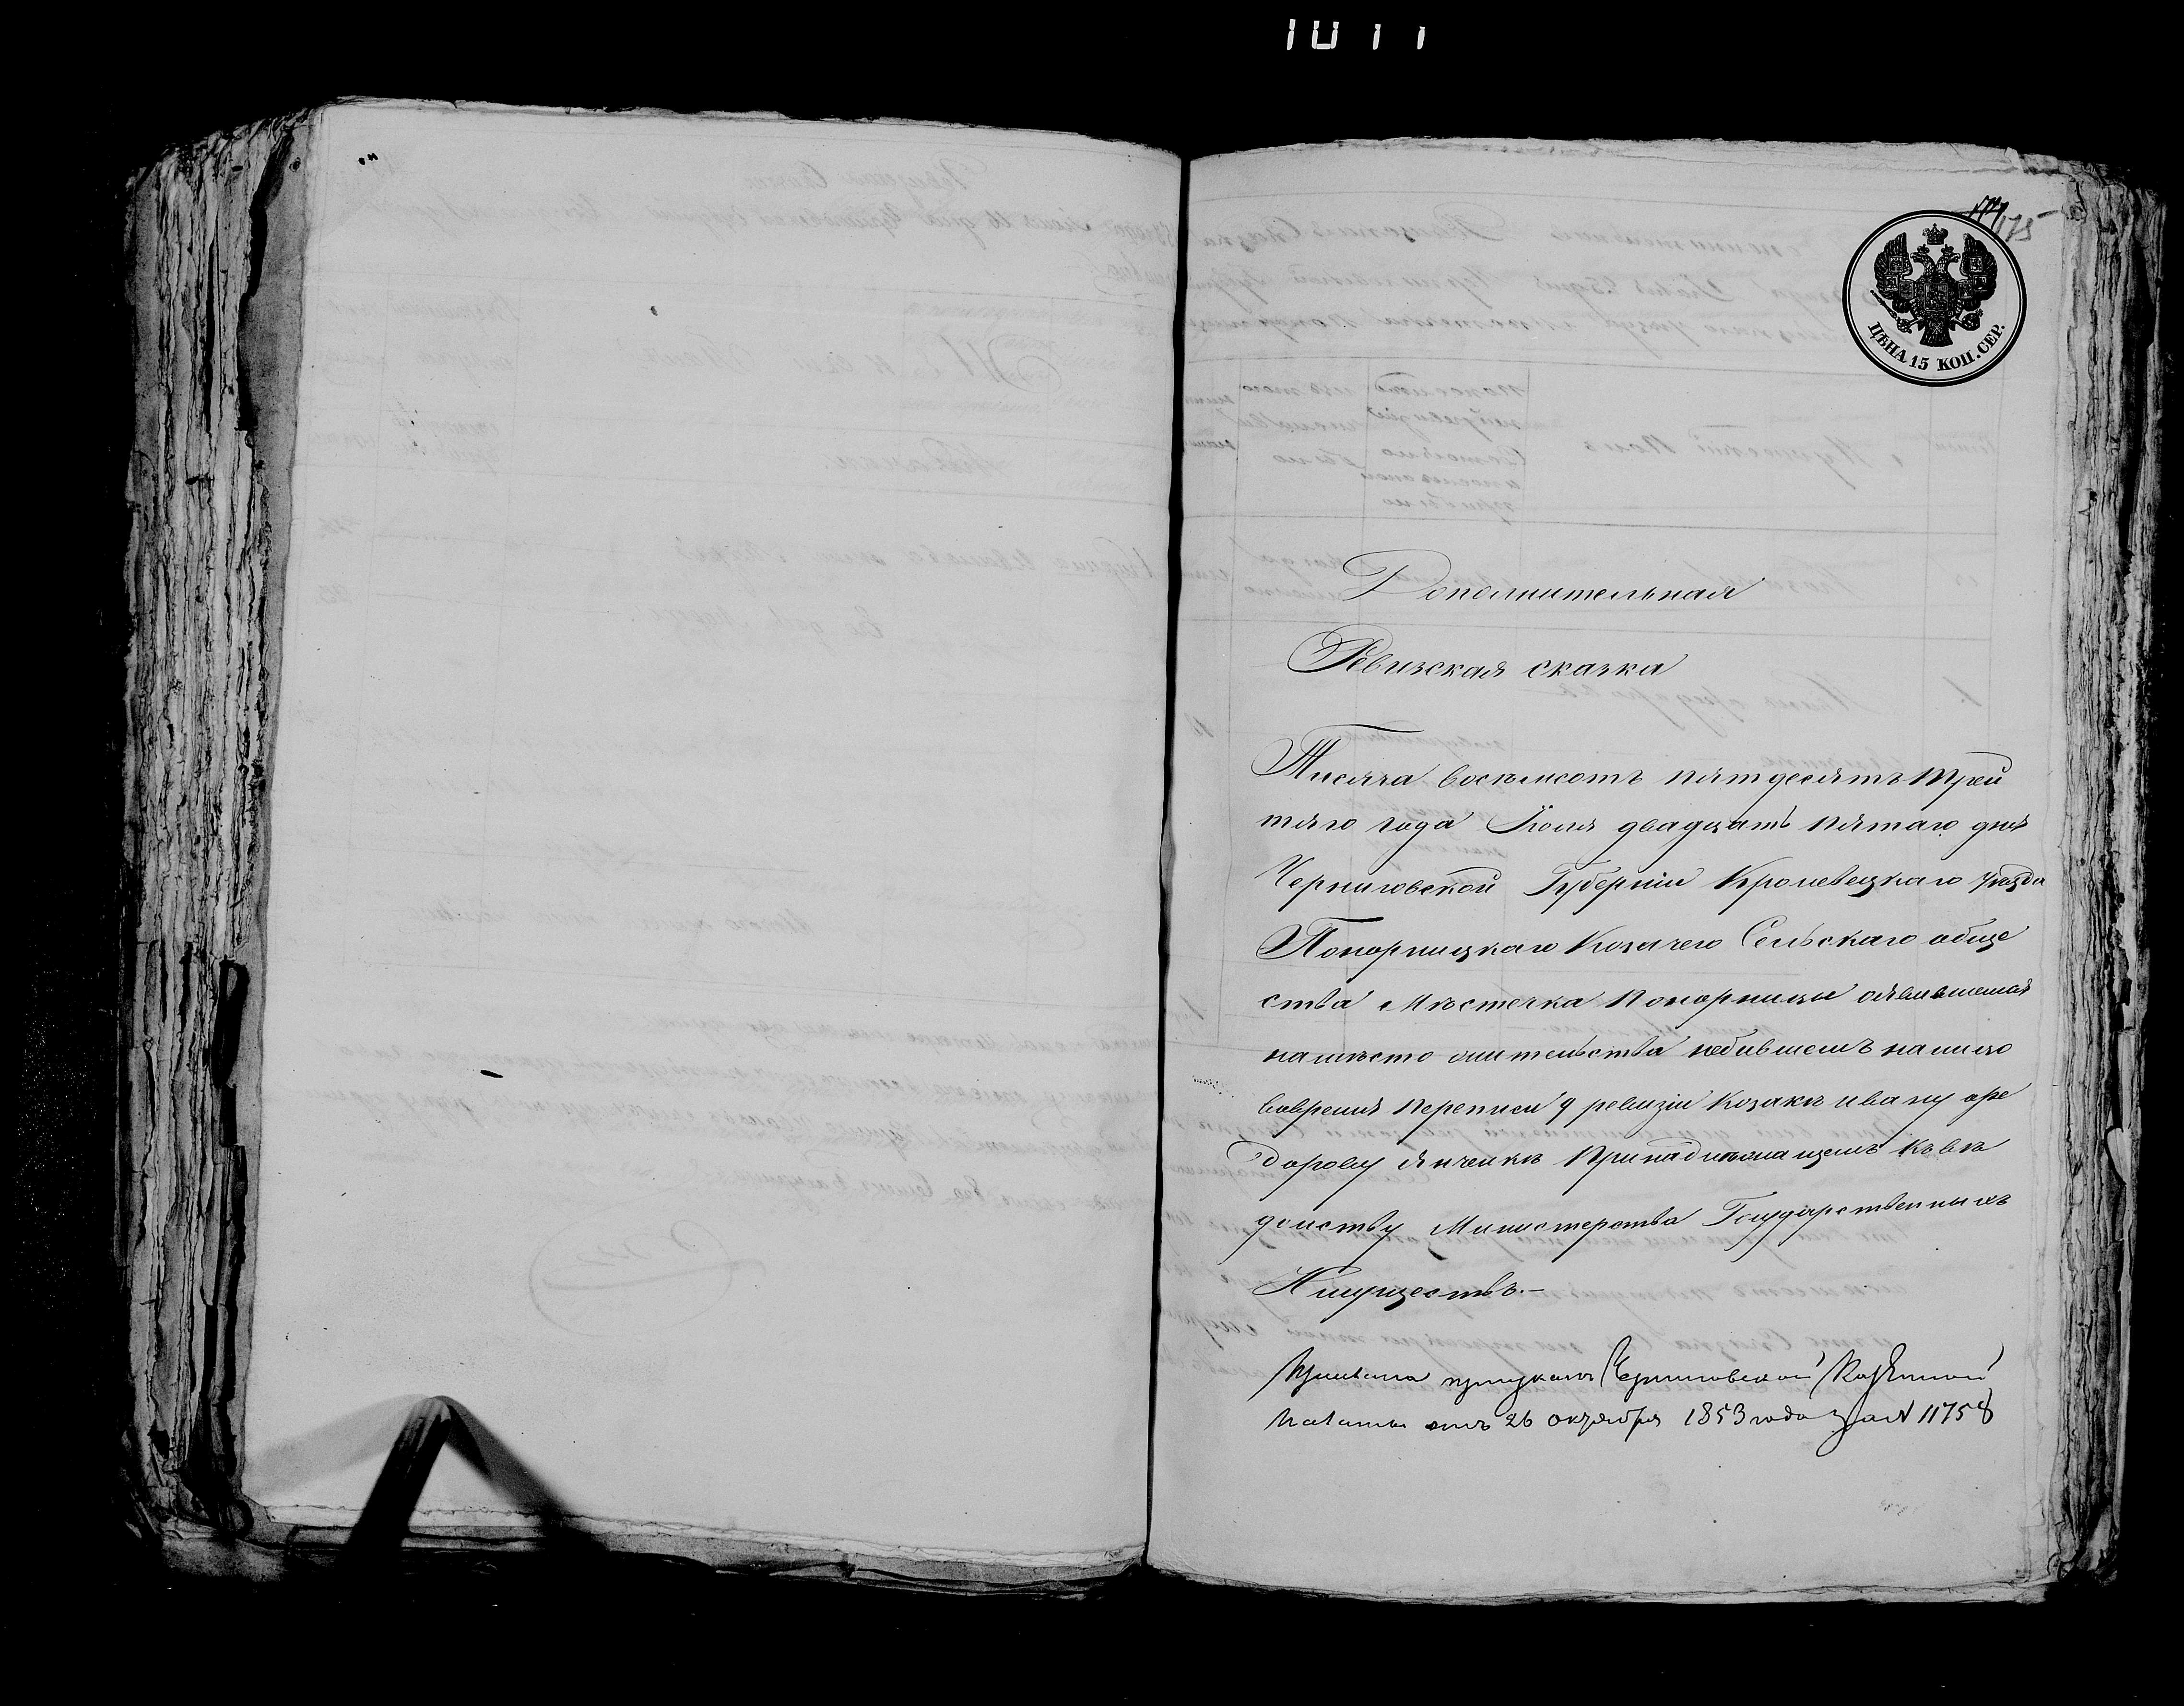 1011
175
ЦѢНА 15 КОП. СЕР.
Дополнительная
Ревизская сказка
Тисяча восемьсотъ пятдесятъ трей
тяго года Июля двадцать пятаго дня
Черниговской Губерніи Кролевецкаго уѣзда
Понорницкаго Козачего Сельскаго обще
ства Мѣстечка Понорницы оявившемся
намѣсто жительства небившемъ налицо
вовремя переписи 9 ревизіи Козакѣ ивану фе
дорову Принадлежащемъ Къвѣ
домству Министерства Государственныхъ
Имуществъ.—
Черниговской Казенной
Палаты отъ 26 октября 1853 года за № 11758